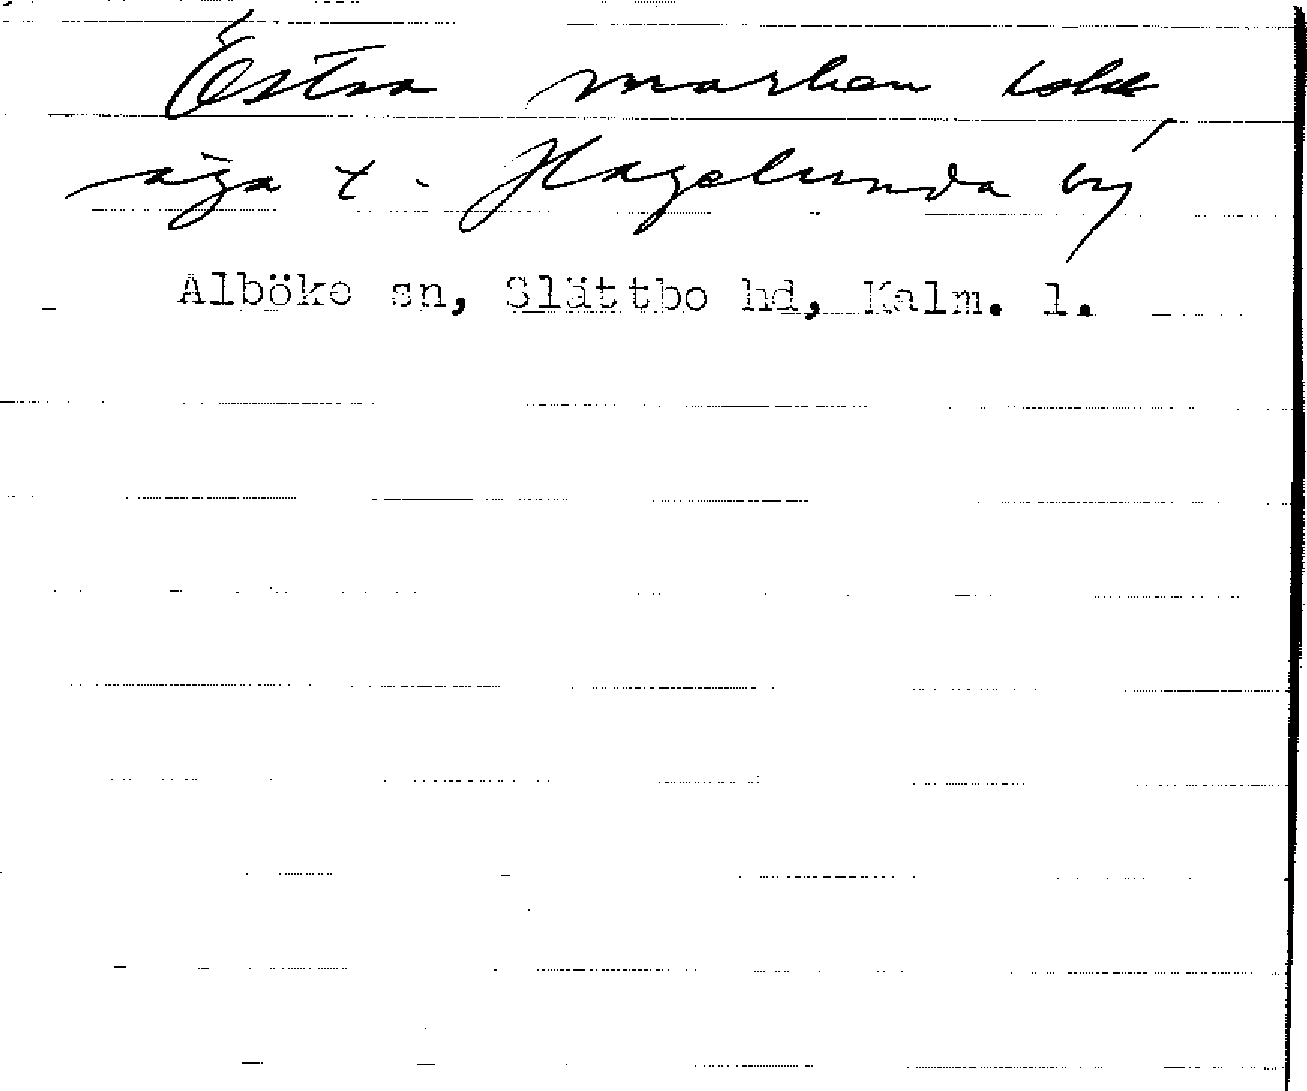 Östra marken
äga t. Hagelunda by
Alböke sn, Slättbo hd, Kalm. l.